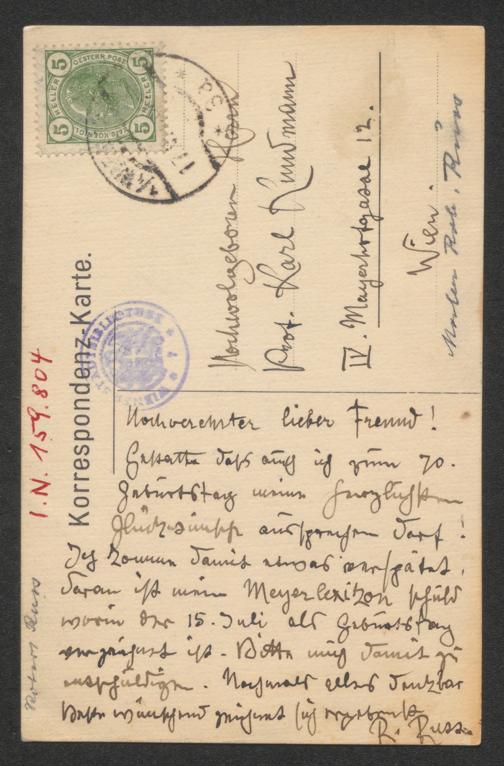 5 OESTERR. POST 5
HELLER HELLER
5 5
WIEN
Hochwolgeboren Herrn
Prof. Karl Kundmann
IV. Mayerhofgasse 12.
Wien.
Maler Rob. Russ
Korrespondenz-Karte.
I.N. 159.804
Robert Russ
Hochverehrter lieber Freund!
Gestatte daß auch ich zum 70.
Geburtstag meine herzlichsten
Glückwünsche aussprechen darf!
Ich komme damit etwas verspätet,
daran ist mein Meyerlexikon schuld
worin der 15. Juli als Geburtstag
verzeichnet ist. Bitte mich damit zu
entschuldigen. Nochmals alles denkbar
Beste wünschend zeichnet sich ergebenst
R. Russ